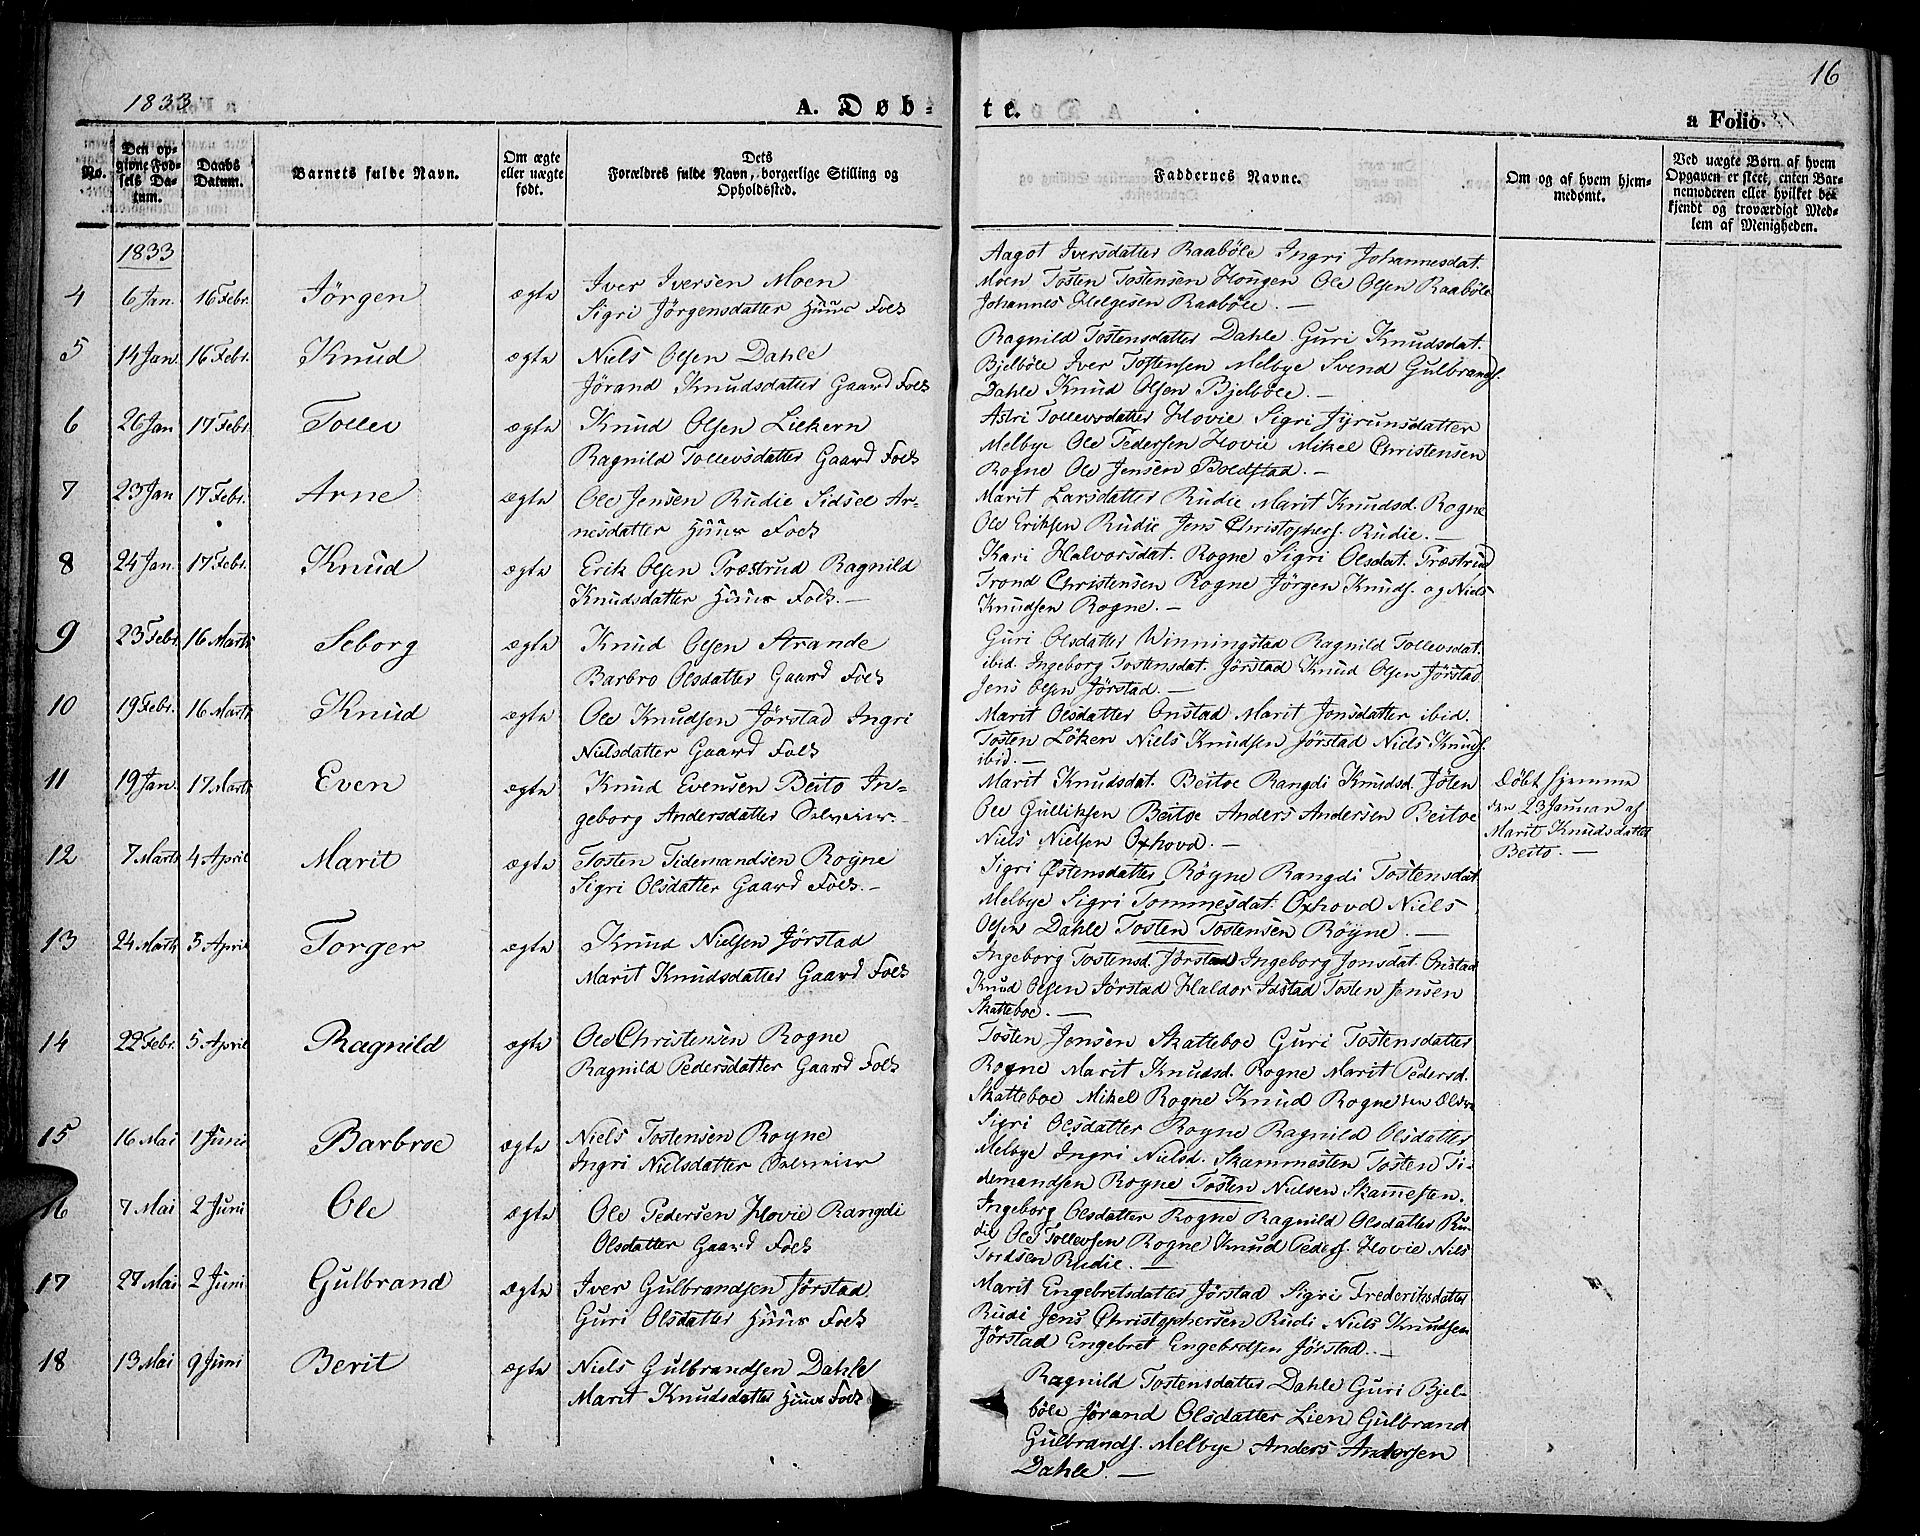 1833
A. Døb-
te.
16
a Folio.
No.
Den op-
givne Fød-
sels Da-
tum.
Daabs
Datum.
Barnets fulde Navn.
Om ægte
eller uægte
født.
Dets
Forældres fulde Navn, borgerlige Stilling og
Opholdssted.
Faddernes Navne.
Om og af hvem hjem-
medømt.
Ved uægte Børn af hvem
Opgaven er skeet, enten Bar-
nemoderen eller hvilket be-
kjendt og troværdigt Med-
lem af Menigheden.
1833
4 6 Jan. 16 Febr. Jörgen ægte
Iver Iversen Moen
Sigri Jörgensdatter Huus Folk
Aagot Iversdatter Raaböle Ingri Johannesdat.
Moen Tosten Tostensen Hougen Ole Olsen Raaböle
Johannes Helgesen Raaböle. —
5 14 Jan. 16 Febr. Knud ægte
Niels Olsen Dahle
Jörand Knudsdatter Gaard Folk
Ragnild Tostensdatter Dahle Guri Knudsdat.
Bjelböle Iver Tostensen Melbye Svend Gulbrands.
Dahle Knud Olsen Bjelböle. —
6 26 Jan 17 Febr. Tollev ægte
Knud Olsen Liekern
Ragnild Tollevsdatter Gaard Folk
Astri Tollevsdatter Hovie Sigri Jyrunsdatter
Melbye Ole Pedersen Hovie Mikel Christensen
Rogne Ole Jensen Boldstad. —
7 23 Jan 17 Febr. Arne ægte
Ole Jensen Rudie Sidsel Ar-
nesdatter Huus Folk
Marit Larsdatter Rudie Marit Knudsd. Rogne
Ole Eriksen Rudie Jens Christophers. Rudie. —
8 24 Jan. 17 Febr. Knud ægte
Erik Olsen Præstrud Ragnild
Knudsdatter Huus Folk. —
Kari Halvorsdat. Rogne Sigri Olsdat. Præstrud
Trond Christensen Rogne Jörgen Knuds. og Niels
Knudsen Rogne. —
9 23 Febr. 16 Marts Seborg ægte
Knud Olsen Strande
Barbro Olsdatter Gaard Folk
Guri Olsdatter Winningstad Ragnild Tollevsdat.
ibid. Ingeborg Tostensdat. Jörstad Knud Olsen Jörstad
Jens Olsen Jörstad. —
10 19 Febr. 16 Marts Knud ægte
Ole Knudsen Jörstad Ingri
Nielsdatter Gaard Folk
Marit Olsdatter Onstad Marit Jonsdatter ibid.
Tosten Löken Niels Knudsen Jörstad Niels Knuds.
ibid. —
11 19 Jan. 17 Marts Even ægte
Knud Evensen Beito In-
geborg Andersdatter
Marit Knudsdat. Beitoe Rangdi Knudsd. Jöten
Ole Gulliksen Beitoe Anders Andersen Beitoe
Niels Nielsen Oxhovd. —
Döbt hjemme
den 23 Januar af
Marit Knudsdatter
Beito. —
12 7 Marts 4 April Marit ægte
Tosten Tidemandsen Rogne
Sigri Olsdatter Gaard Folk. —
Sigri Østensdatter Rögne Rangdi Tostensdat.
Melbye Sigri Tommesdat. Oxhovd Niels
Olsen Dahle Tosten Tostensen Rögne. —
13 24 Marts 5 April Torger ægte
Knud Nielsen Jörstad
Marit Knudsdatter Gaard Folk
Ingeborg Tostensd. Jörstad Ingeborg Jonsdat. Onstad
Knud Olsen Jörstad Haldor Idstad Tosten Jensen
Skatteboe. —
14 22 Febr. 5 April Ragnild ægte
Ole Christensen Rogne
Ragnild Pedersdatter Gaard Folk
Tosten Jensen Skatteboe Guri Tostensdatter
Rogne Marit Knudsd. Rogne Marit Pedersd.
Skatteboe Mikel Rogne Knud Rogne den Eldre
15 16 Mai 1 Juni Barbroe ægte
Niels Tostensen Rogne
Ingri Nielsdatter
Sigri Olsdatter Rogne Ragnild Olsdatter
Melbye Ingri Nielsd. Skammesten Tosten Ti-
demandsen Rogne Tosten Nielsen Skamesten.
16 7 Mai 2 Juni Ole ægte
Ole Pedersen Hovie Rangdi
Olsdatter Gaard Folk
Ingeborg Olsdatter Rogne Ragnild Olsdatter Ru-
die Ole Tollevsen Rogne Knud Peders. Hovie Niels
Tordsen Rudie. —
17 27 Mai 2 Juni Gulbrand ægte
Iver Gulbrandsen Jörstad
Guri Olsdatter Huus Folk
Marit Engebretsdatter Jörstad Sigri Frederiksdatter
Rudi Jens Christophersen Rudi Niels Knudsen
Jörstad Engebret Engebretsen Jörstad. —
18 13 Mai 9 Juni Berit ægte
Niels Gulbrandsen Dahle
Marit Knudsdatter Huus Folk
Ragnild Tostensdatter Dahle Guri Bjel-
böle Jörand Olsdatter Lien Gulbrand
Gulbrands. Melbye Anders Andersen
Dahle. —